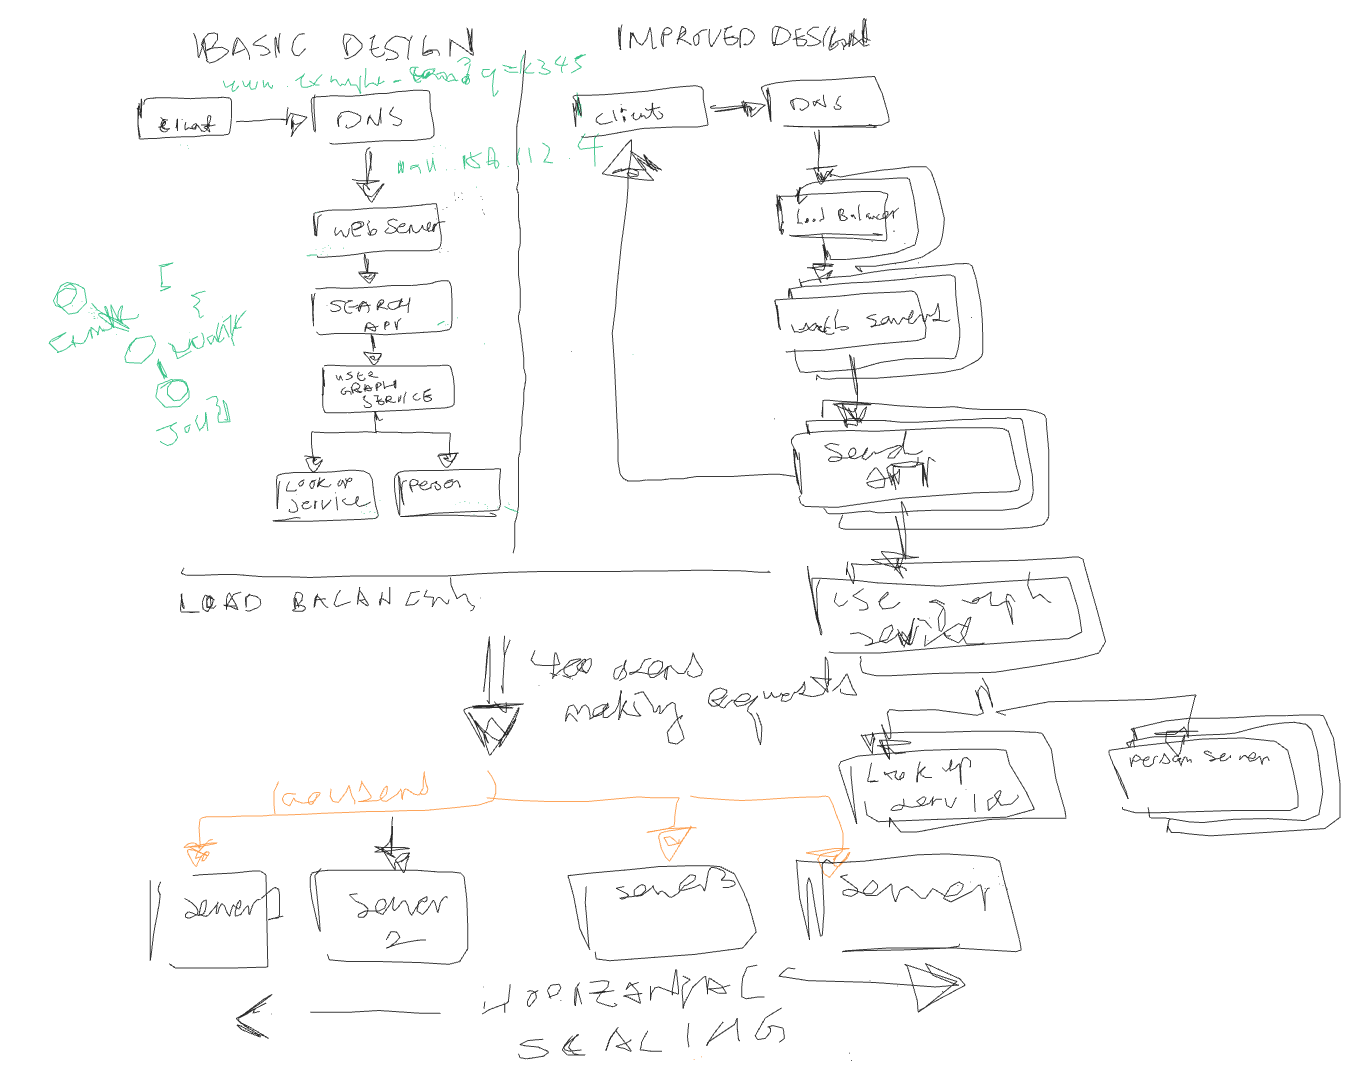 BASIC DESIGN
q=k345
Client
DNS
.112.4
Web Server
SEARCH
API
USER
GRAPH
SERVICE
Look up
Service
Person
[
{
John
}]
IMPROVED DESIGN
Client
DNS
Load Balancer
web server1
Search
API
use graph
service
Look up
service
Person Server
LOAD BALANCING
400 users
making requests
100 users
Server1
Server
2
Server3
Server
HORIZANTAL
SCALING